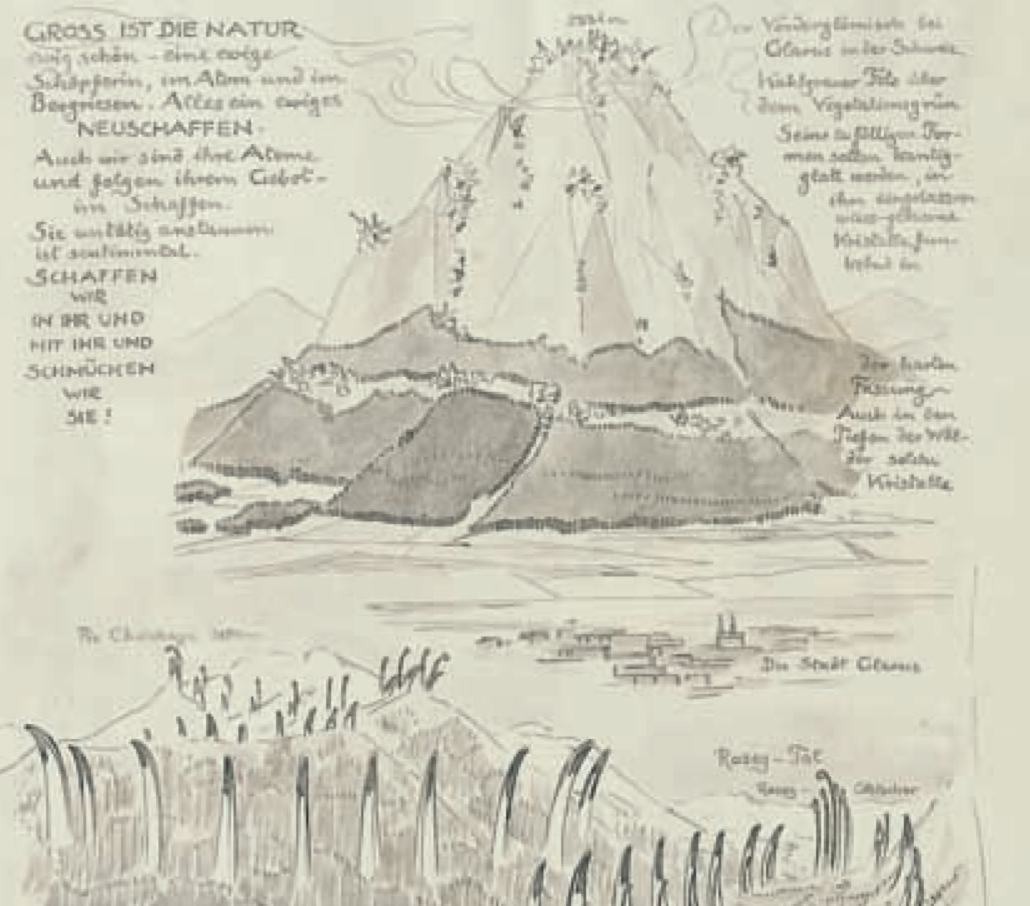 GROSS IST DIE NATUR
ewig schön – eine ewige
Schöpferin, im Atom und im
Bergriesen. Alles ein ewiges
NEUSCHAFFEN.
Auch wir sind ihre Atome
und folgen ihrem Gebot –
im Schaffen.
Sie untätig anstaunen
ist sentimental.
SCHAFFEN
WIR
IN IHR UND
MIT IHR UND
SCHMÜCKEN
WIR
SIE!
Der Vorderglärnisch bei
Glarus in der Schweiz
Kahlgrauer Fels über
dem Vegetationsgrün
Seine zufälligen For-
men sollen kantig-
glatt werden, in
ihm eingelassen
Kristalle fun-
keln in
der harten
Fassung
Auch in den
Tiefen der Wäl-
der solche
Kristalle
Die Stadt Glarus
Roseg-Tal
Roseg- Gletscher